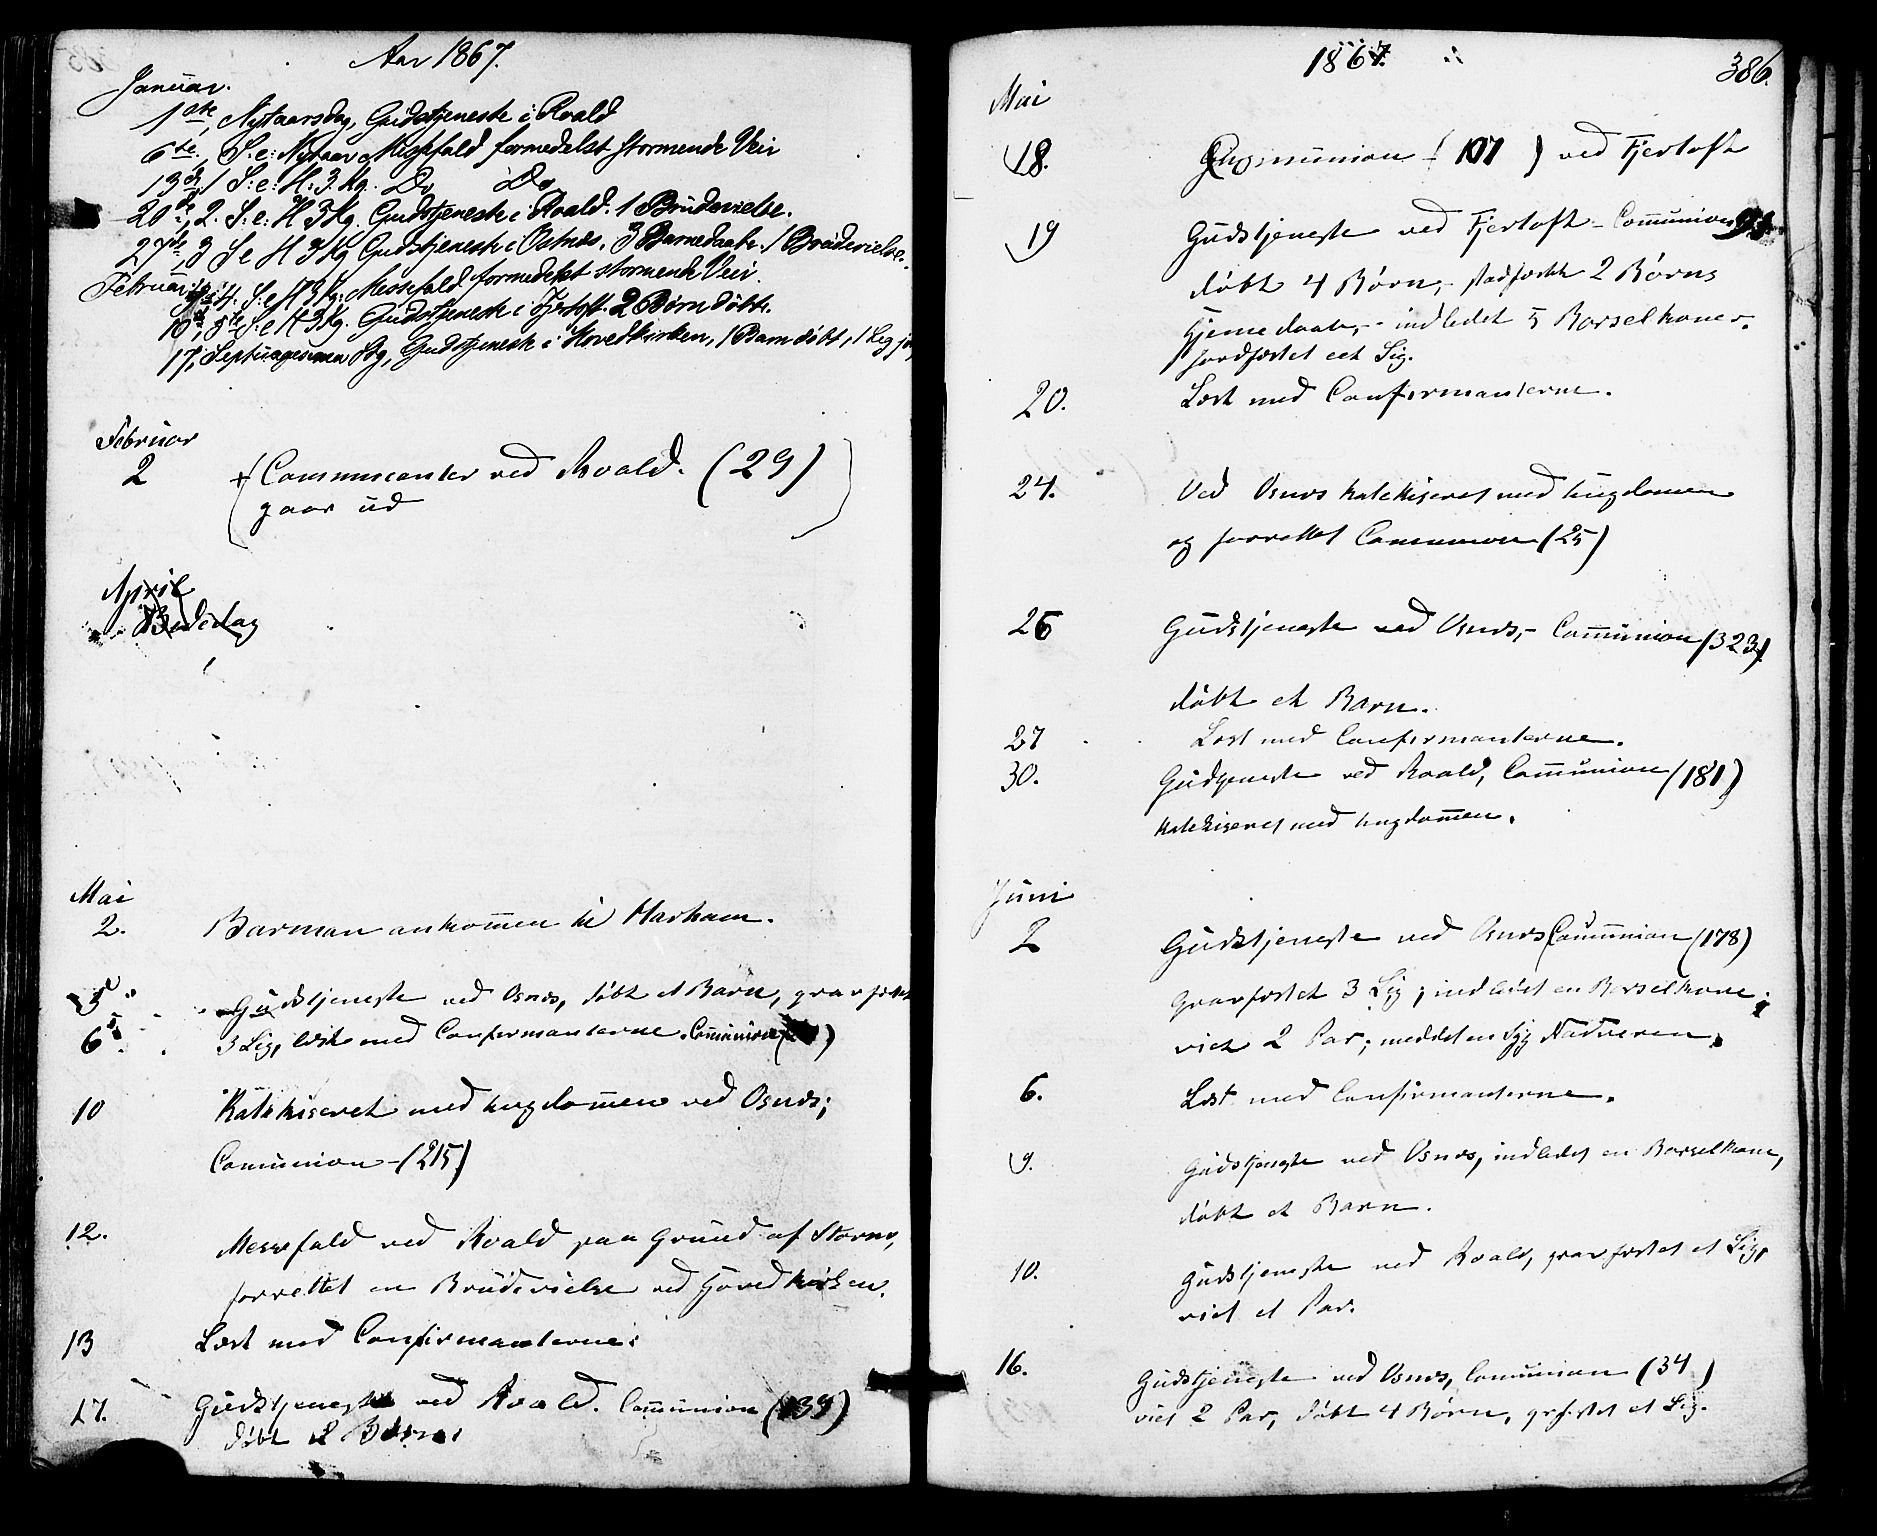 Aar 1867.
Januar.
1ste, Nytaarsdag, Gudstjeneste i Roald
6te, S: e: Nytaar, Messefald formedelst stormende Veir
13de, 1 S: e: H: 3. Kg. Do Do
20de, 2. S: e: H 3 Kg. Gudstjeneste i Roald. 1 Brudevielse.
27de, 3 S e H 3 Kg Gudstjeneste i Østnæs, 3 Barnedaab. 1 Brudevielse.
Februar 4. S: e H 3 Kg: Messefald formedelst stormende Veir.
10de, 5te S: e H 3 Kg. Gudstjeneste i Fjertoft. 2 Børn døbte.
17, Septuagesima Sdg, Gudstjeneste i Hovedkirken, 1 Barn døbt, 1 Lig
Februar
2 Communicanter ved Roald. (29)
gaar ud
April
Bededag
Mai
2. Barman ankommen til Harham.
5 Gudstjeneste ved Osnæs, døbt et Barn, gravfæstet
6. 3 Lig, læst med Confirmanterne. Communion
10 Katekiseret med Ungdommen ved Osnæs;
Communion - (215)
12. Messefald ved Roald paa Grund af Storm,
forrettet en Brudevielse ved Hovedkirken.
13 Læst med Confirmanterne.
17. Gudstjeneste ved Roald. Communion (139)
døbt 2 Børn
1867.
386.
Mai
18. Communion (107) ved Fjertoft
19 Gudstjeneste ved Fjertoft - Communion
døbt 4 Børn, stadfæstet 2 Børns
Hjemmedaab, - indledet 5 Barselkoner.
jordfæstet eet Lig.
20. Læst med Confirmanterne.
24. Ved Osnæs katekiseret med Ungdommen
og forrettet Communion (25)
26 Gudstjeneste ved Osnæs, - Communion (323)
døbt et Barn.
27 Læst med Confirmanterne.
30. Gudtjeneste ved Roald, Communion (181)
katekiseret med Ungdommen.
Juni
2 Gudstjeneste ved Osnæs Communion (178)
Gravfæstet 3 Lig; indledet en Barselkone;
viet 2 Par; meddelt en Syg Nadveren.
6. Læst med Confirmanterne.
9. Gudstjeneste ved Osnæs, indledet en Barselkone,
døbt et Barn.
10. Gudstjeneste ved Roald, gravfæstet et Lig,
viet et Par.
16. Gudstjeneste ved Osnæs, Communion (34)
viet 2 Par, døbt 4 Børn, grfæstet et Lig.